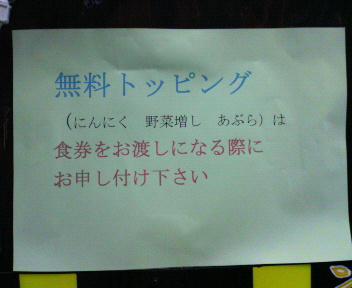 無料トッピング
（にんにく　野菜増し　あぶら）は
食券をお渡しになる際に
お申し付け下さい